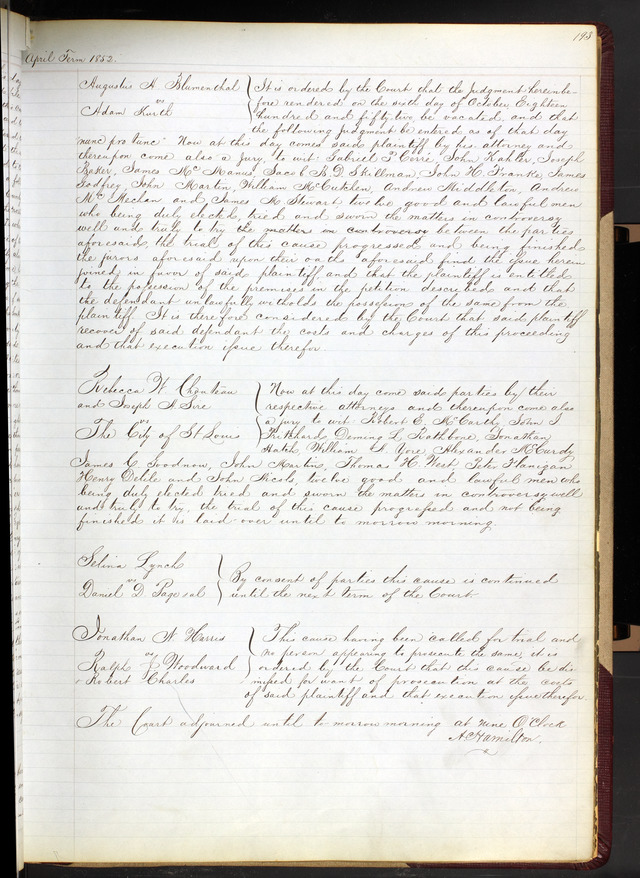 193
April Term 1852.
Augustus H Blumenthal
vs
Adam Kurth
It is ordered by the Court that the Judgment hereinbe-
fore rendered on the sixth day of October Eighteen
hundred and fifty two be vacated, and that
the following judgment be entered as of that day
"nunc pro tunc" Now at this day comes said plaintiff by his attorney and
thereupon come also a jury, to wit: Gabriel P Corrie, John Kahler, Joseph
Baker, James Mc Manus, Jacob B. D Skillman, John H. Franke, James
Godfrey, John Martin, William McCutchen, Andrew Middleton, Andrew
Mc Mechan and James H Stewart, twelve good and lawful men
who being duly elected, tried and sworn the matters in controversy
well and truly to try the matters in controversy between the parties
aforesaid, the trial of this cause progressed and being finished
the jurors aforesaid upon their oath aforesaid find the issue herein
joined, in favor of said plaintiff and that the plaintiff is entitled
to the possession of the premises in the petition described and that
the defendant unlawfully witholds the possession of the same from the
plaintiff It is therefore considered by the Court that said plaintiff
recover of said defendant the costs and charges of this proceeding
and that execution issue therefor.
Rebecca W. Chouteau
and Joseph A. Sire
vs
The City of St Louis
Now at this day come said parties by their
respective attorneys and thereupon come also
a jury to wit: Robert E. McCarthy, John I
Prichard, Deming L Rathbone, Jonathan
Hatch, William Yore, Alexander McCurdy
James C. Goodnow, John Martin, Thomas H. West, Peter Flanigan
Henry Delile and John Nicols, twelve good and lawful men who
being duly elected tried and sworn the matters in controversy well
and truly to try, the trial of this cause progressed and not being
finished it is laid over until to morrow morning.
Selina Lynch
vs
Daniel D Page et al
By consent of parties this cause is continued
until the next term of the Court.
Jonathan N Harris
vs
Ralph J Woodward
& Robert Charles
This cause having been called for trial and
no person appearing to prosecute the same, it is
ordered by the Court that this cause be dis
missed for want of prosecution at the costs
of said plaintiff and that execution issue therefor.
The Court adjourned until to morrow morning at nine O'Clock
A Hamilton.